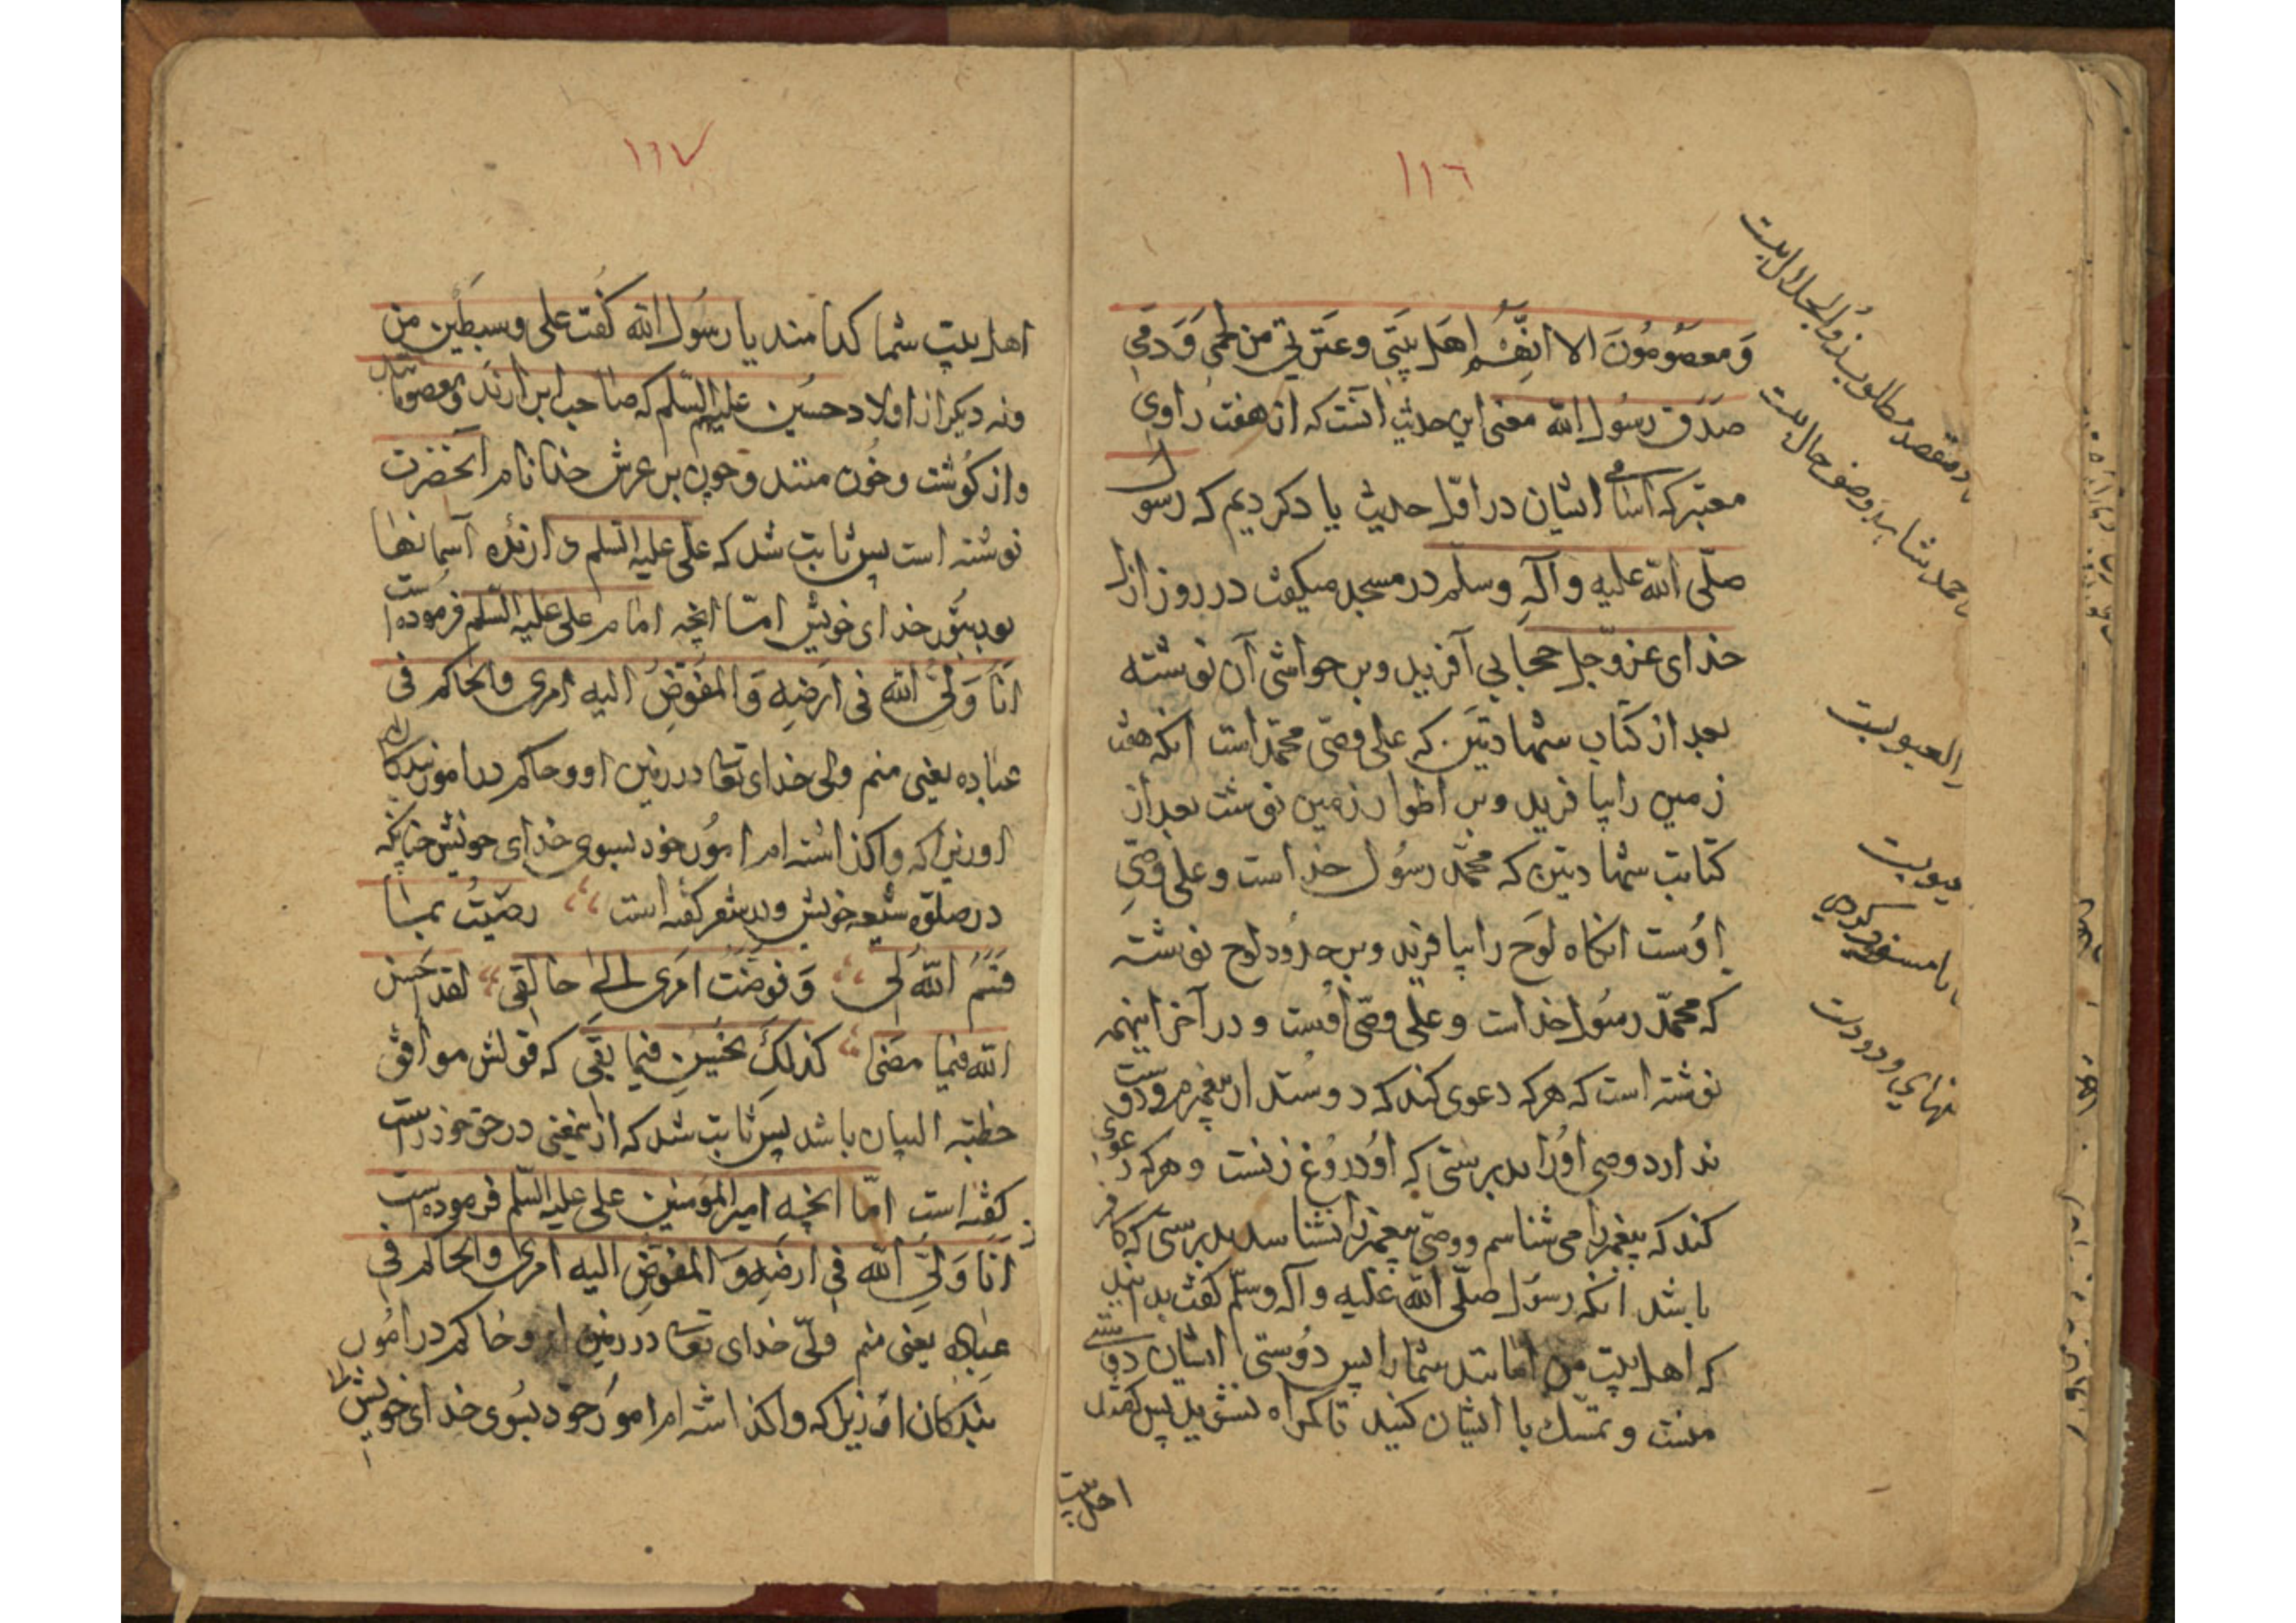 ١١٦
وَمعصُومُونَ الا انِّهُم اهَل بَيتَي وعتَرتي من لحمي وَدمَي
صَدَق رسُول الله معنی این حدیث انست که از هفت راوی
معتبر که اسامی ایشان در اوّل حدیث یاد کردیم که رسول
صلّی الله علیه وآلهِ وسلّم در مسجد میکفت در روز ازل
خدای عزّوجل حجابی آفرید وبر حواشی آن نوشته
بعد از کتاب شهادتین که علی وصّی محمّد است انکه هفت
زمین را بیافرید وبر اطوار زمین نوشت بعد از
کتابت شهادتین که محمّد رسُول خداست وعلی وصّی
اوُست انکاه لوَح را بیافرید وبر حدُود لوح نوشته
که محمّد رسُول خداست وعلی وصّی اوست ودر آخر اینهمه
نوشته است که هرکه دعوی کند که دوستدار پیغمبرم ودوست
ندارد وصی اوُرا بدرستی که اوُ دروُغ زنست وهرکه دعوی
کند که پیغمبر را می شناسم ووصّی پیغمبر را نشناسد بدرستی که کافر
باشد انکه رسُول صلّی الله علیه وآله وسلّم کفت بدانید
که اهل بیت من امانتند شمارا پس دوُستی ایشان دوستی
منست وتمسّك با ایشان کنید تا کمراه نشوید پس کفتند
اهل بیت
بادمقصد مطلوب بذُوالجلال بیت
العیوبیت
١١٧
اهل بیت شما کدامند یا رسُول الله کُفت علی وسبطَین من
ونه دیکر از اولاد حسُین علیهم السّلم که صاحب ابرارند ومعصومانند
واز کُوشت وخُون منند وچون بر عرش خدا نام آنحضرت
نوشته است پس ثابت شد که علی علیه السّلم دارنده آسمانها
بود بنوُر خدای خویش امّا انچه امام علی علیه السّلم فرموده است
اَنَا وَلیُّ الله فی ارَضِهِ وَالمفوَّضُ الیه امری والحاکم فی
عباده یعنی منم ولی خدای تعا در زمین او وحاکم در امور بندکان
او زیرا که واکذاشته ام امُور خود بسوی خدای خویش چنانکه
در صلوة شیعه خویش ودر شعر کفته است رضیتُ بمَا
قسَمَ اللّهُ لی وَفوضتُ امَری الیٰ خالقی لقد احَسَن
الله فیما مضیٰ کذلِكَ یُحُسِن فیما بقَی که قولش موافق
خطبة البیان باشد پس ثابت شد که از نمعنی در حق خود راست
کفته است امّا انچه امیر المُومنین علی علیه السّلم فرموده است
اَنَا وَلیُّ الله فی ارضهِ وَالمفوَّض الیه امری والحاکم فی
عبادِه یعنی منم ولّی خدای تعا در زمین او وحاکم در امُور
بندکان او زیرا که واکذاشته ام امور خود بسُوی خدای خویش